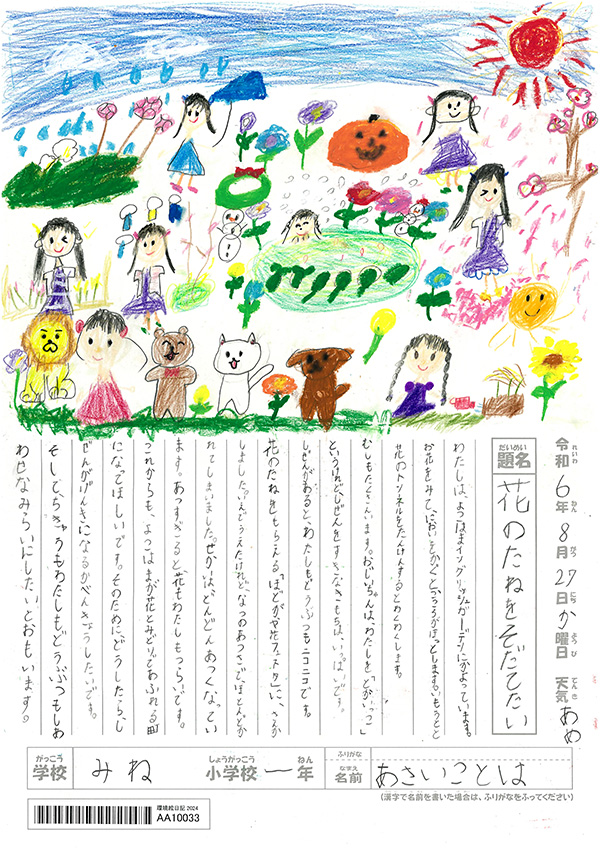 令和6年8月27日か曜日 天気 あめ
れいわ ねん がつ にち ようび てんき
だいめい
題名 花のたねをそだてたい
わたしは、よこはまイングリッシュガーデンにかよっています。
お花をみて、においをかぐと、こころがほっとします。いもうとと
花のトンネルをたんけんするとわくわくします。
むしもたくさんいます。おじいちゃんは、わたしを
というけれど、しぜんをすきなきもちは、いっぱいです。
しぜんがあると、わたしもどうぶつもニコニコです。
花のたねをもらえる「ほどがや花フェスタ」に、さんか
しました。うえたけれど、なつのあつさで、ほとんどか
れてしまいました。せかいは、どんどんあつくなってい
ます。あつすぎると花もわたしもつらいです。
これからも、よこはまが花とみどりであふれる町
になってほしいです。そのために、どうしたら、し
ぜんがげんきになるかべんきょうしたいです。
そして、ちきゅうもわたしもどうぶつもしあ
わせなみらいにしたいとおもいます。
がっこう しょうがっこう ねん ふりがな
学校 みね 小学校 一年
なまえ
名前 あさいことは
(漢字で名前を書いた場合は、ふりがなをふってください)
環境絵日記 2024
AA10033